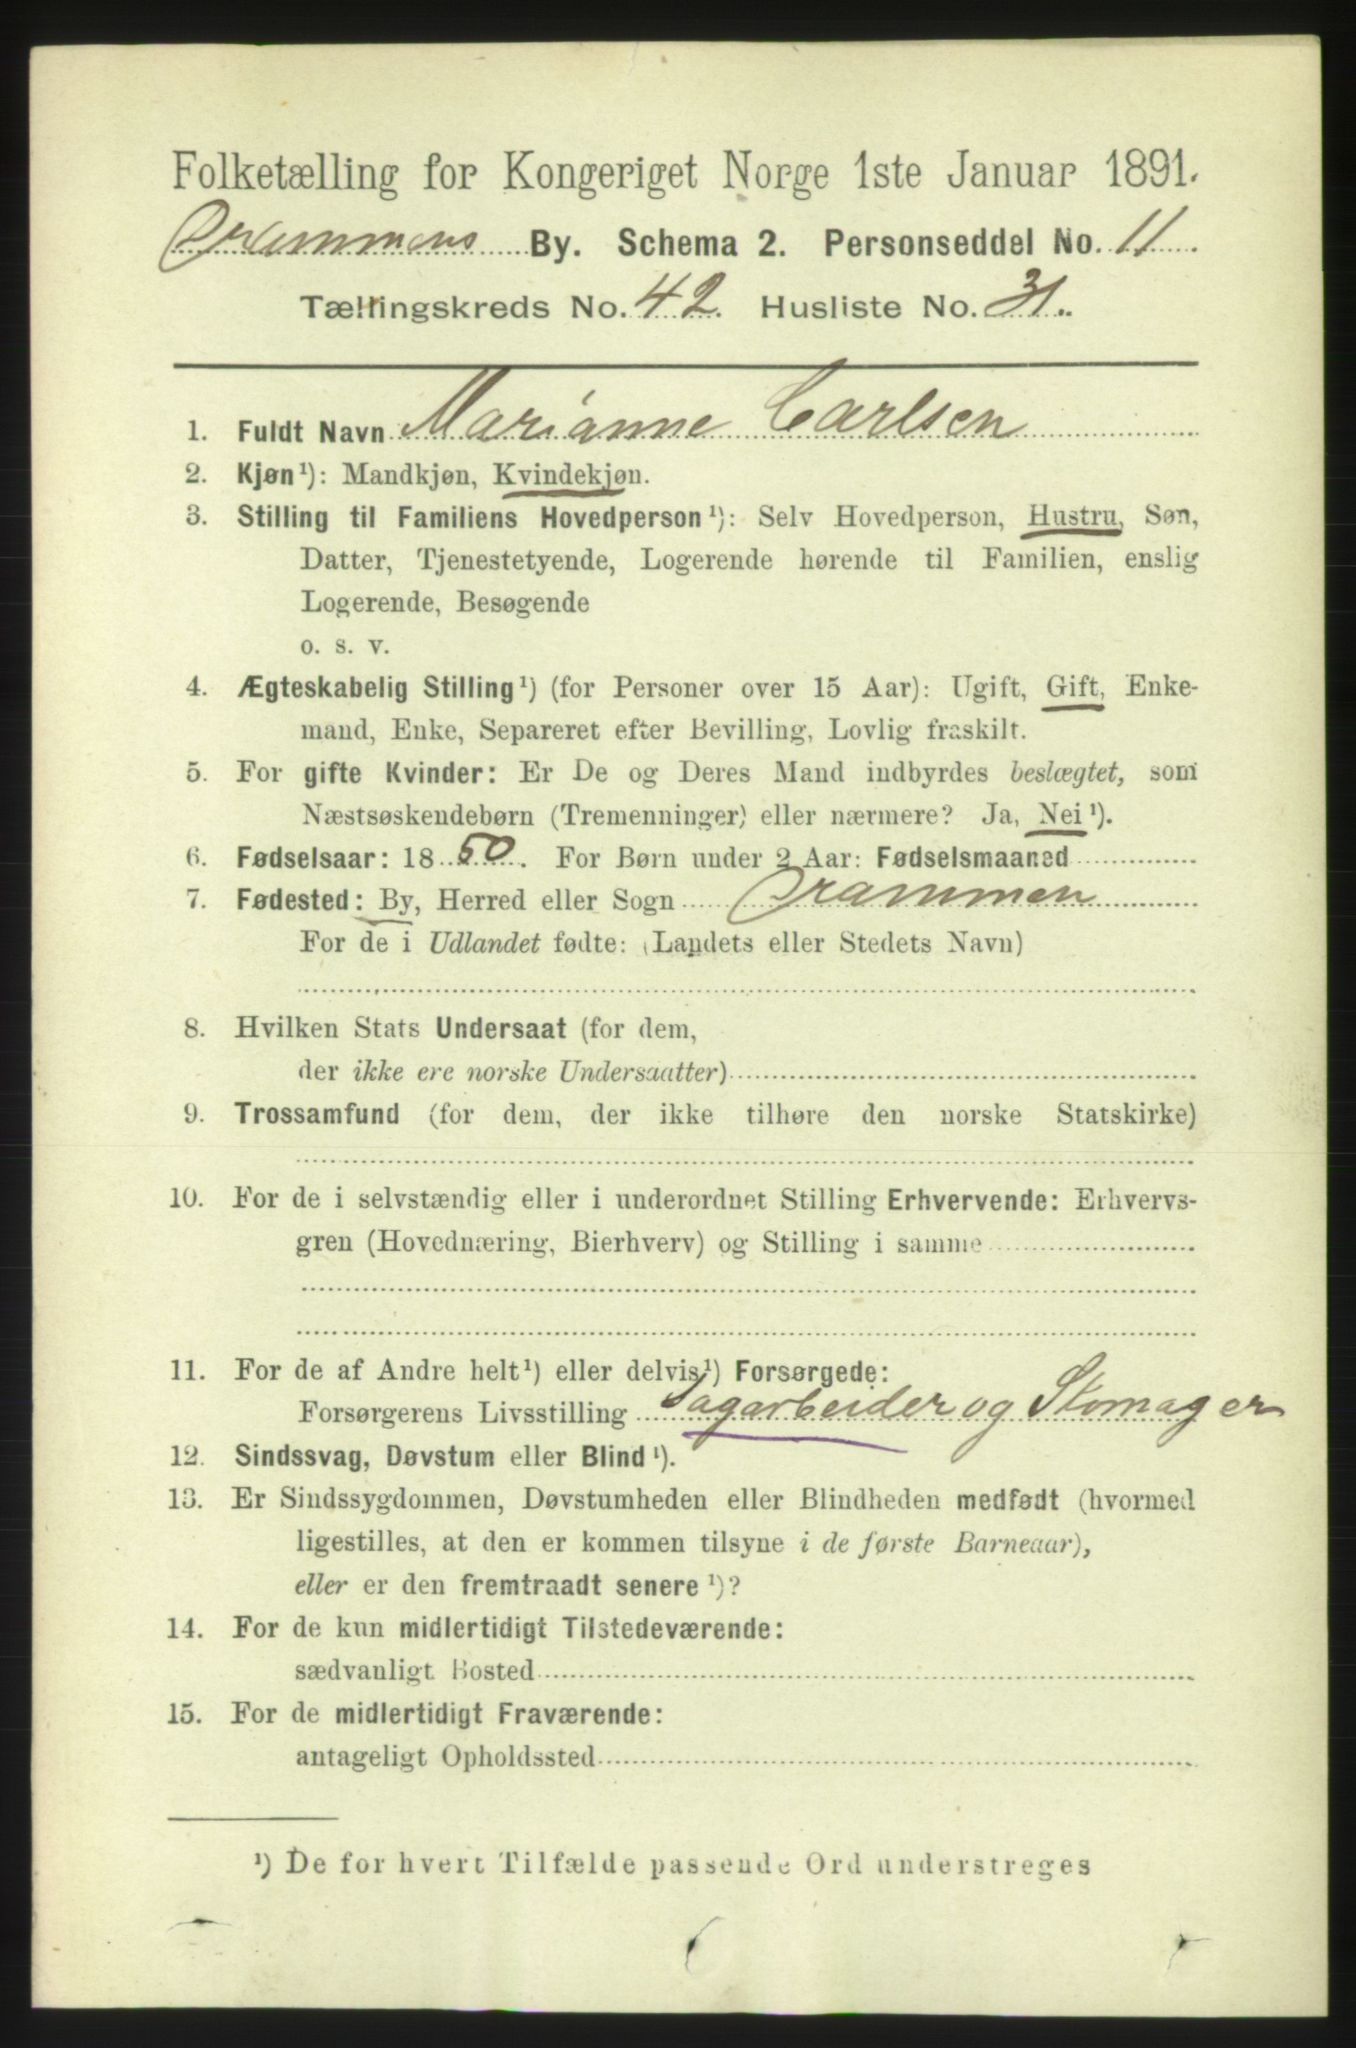 Folketælling for Kongeriget Norge 1ste Januar 1891.
Drammens By. Schema 2. Personseddel No. 11
Tællingskreds No. 42. Husliste No. 31.
1. Fuldt Navn Marianne Carlsen
2. Kjøn¹): Mandkjøn, Kvindekjøn.
3. Stilling til Familiens Hovedperson¹): Selv Hovedperson, Hustru, Søn,
Datter, Tjenestetyende, Logerende hørende til Familien, enslig
Logerende, Besøgende
o. s. v.
4. Ægteskabelig Stilling¹) (for Personer over 15 Aar): Ugift, Gift, Enke-
mand, Enke, Separeret efter Bevilling, Lovlig fraskilt.
5. For gifte Kvinder: Er De og Deres Mand indbyrdes beslægtet, som
Næstsøskendebørn (Tremenninger) eller nærmere? Ja, Nei¹).
6. Fødselsaar: 1850. For Børn under 2 Aar: Fødselsmaaned
7. Fødested: By, Herred eller Sogn Drammen
For de i Udlandet fødte: (Landets eller Stedets Navn)
8. Hvilken Stats Undersaat (for dem,
der ikke ere norske Undersaatter)
9. Trossamfund (for dem, der ikke tilhøre den norske Statskirke)
10. For de i selvstændig eller i underordnet Stilling Erhvervende: Erhvervs-
gren (Hovednæring, Bierhverv) og Stilling i samme
11. For de af Andre helt¹) eller delvis¹) Forsørgede:
Forsørgerens Livsstilling Sagarbeider og Skomager
12. Sindssvag, Døvstum eller Blind¹).
13. Er Sindssygdommen, Døvstumheden eller Blindheden medfødt (hvormed
ligestilles, at den er kommen tilsyne i de første Barneaar),
eller er den fremtraadt senere¹)?
14. For de kun midlertidigt Tilstedeværende:
sædvanligt Bosted
15. For de midlertidigt Fraværende:
antageligt Opholdssted
¹) De for hvert Tilfælde passende Ord understreges